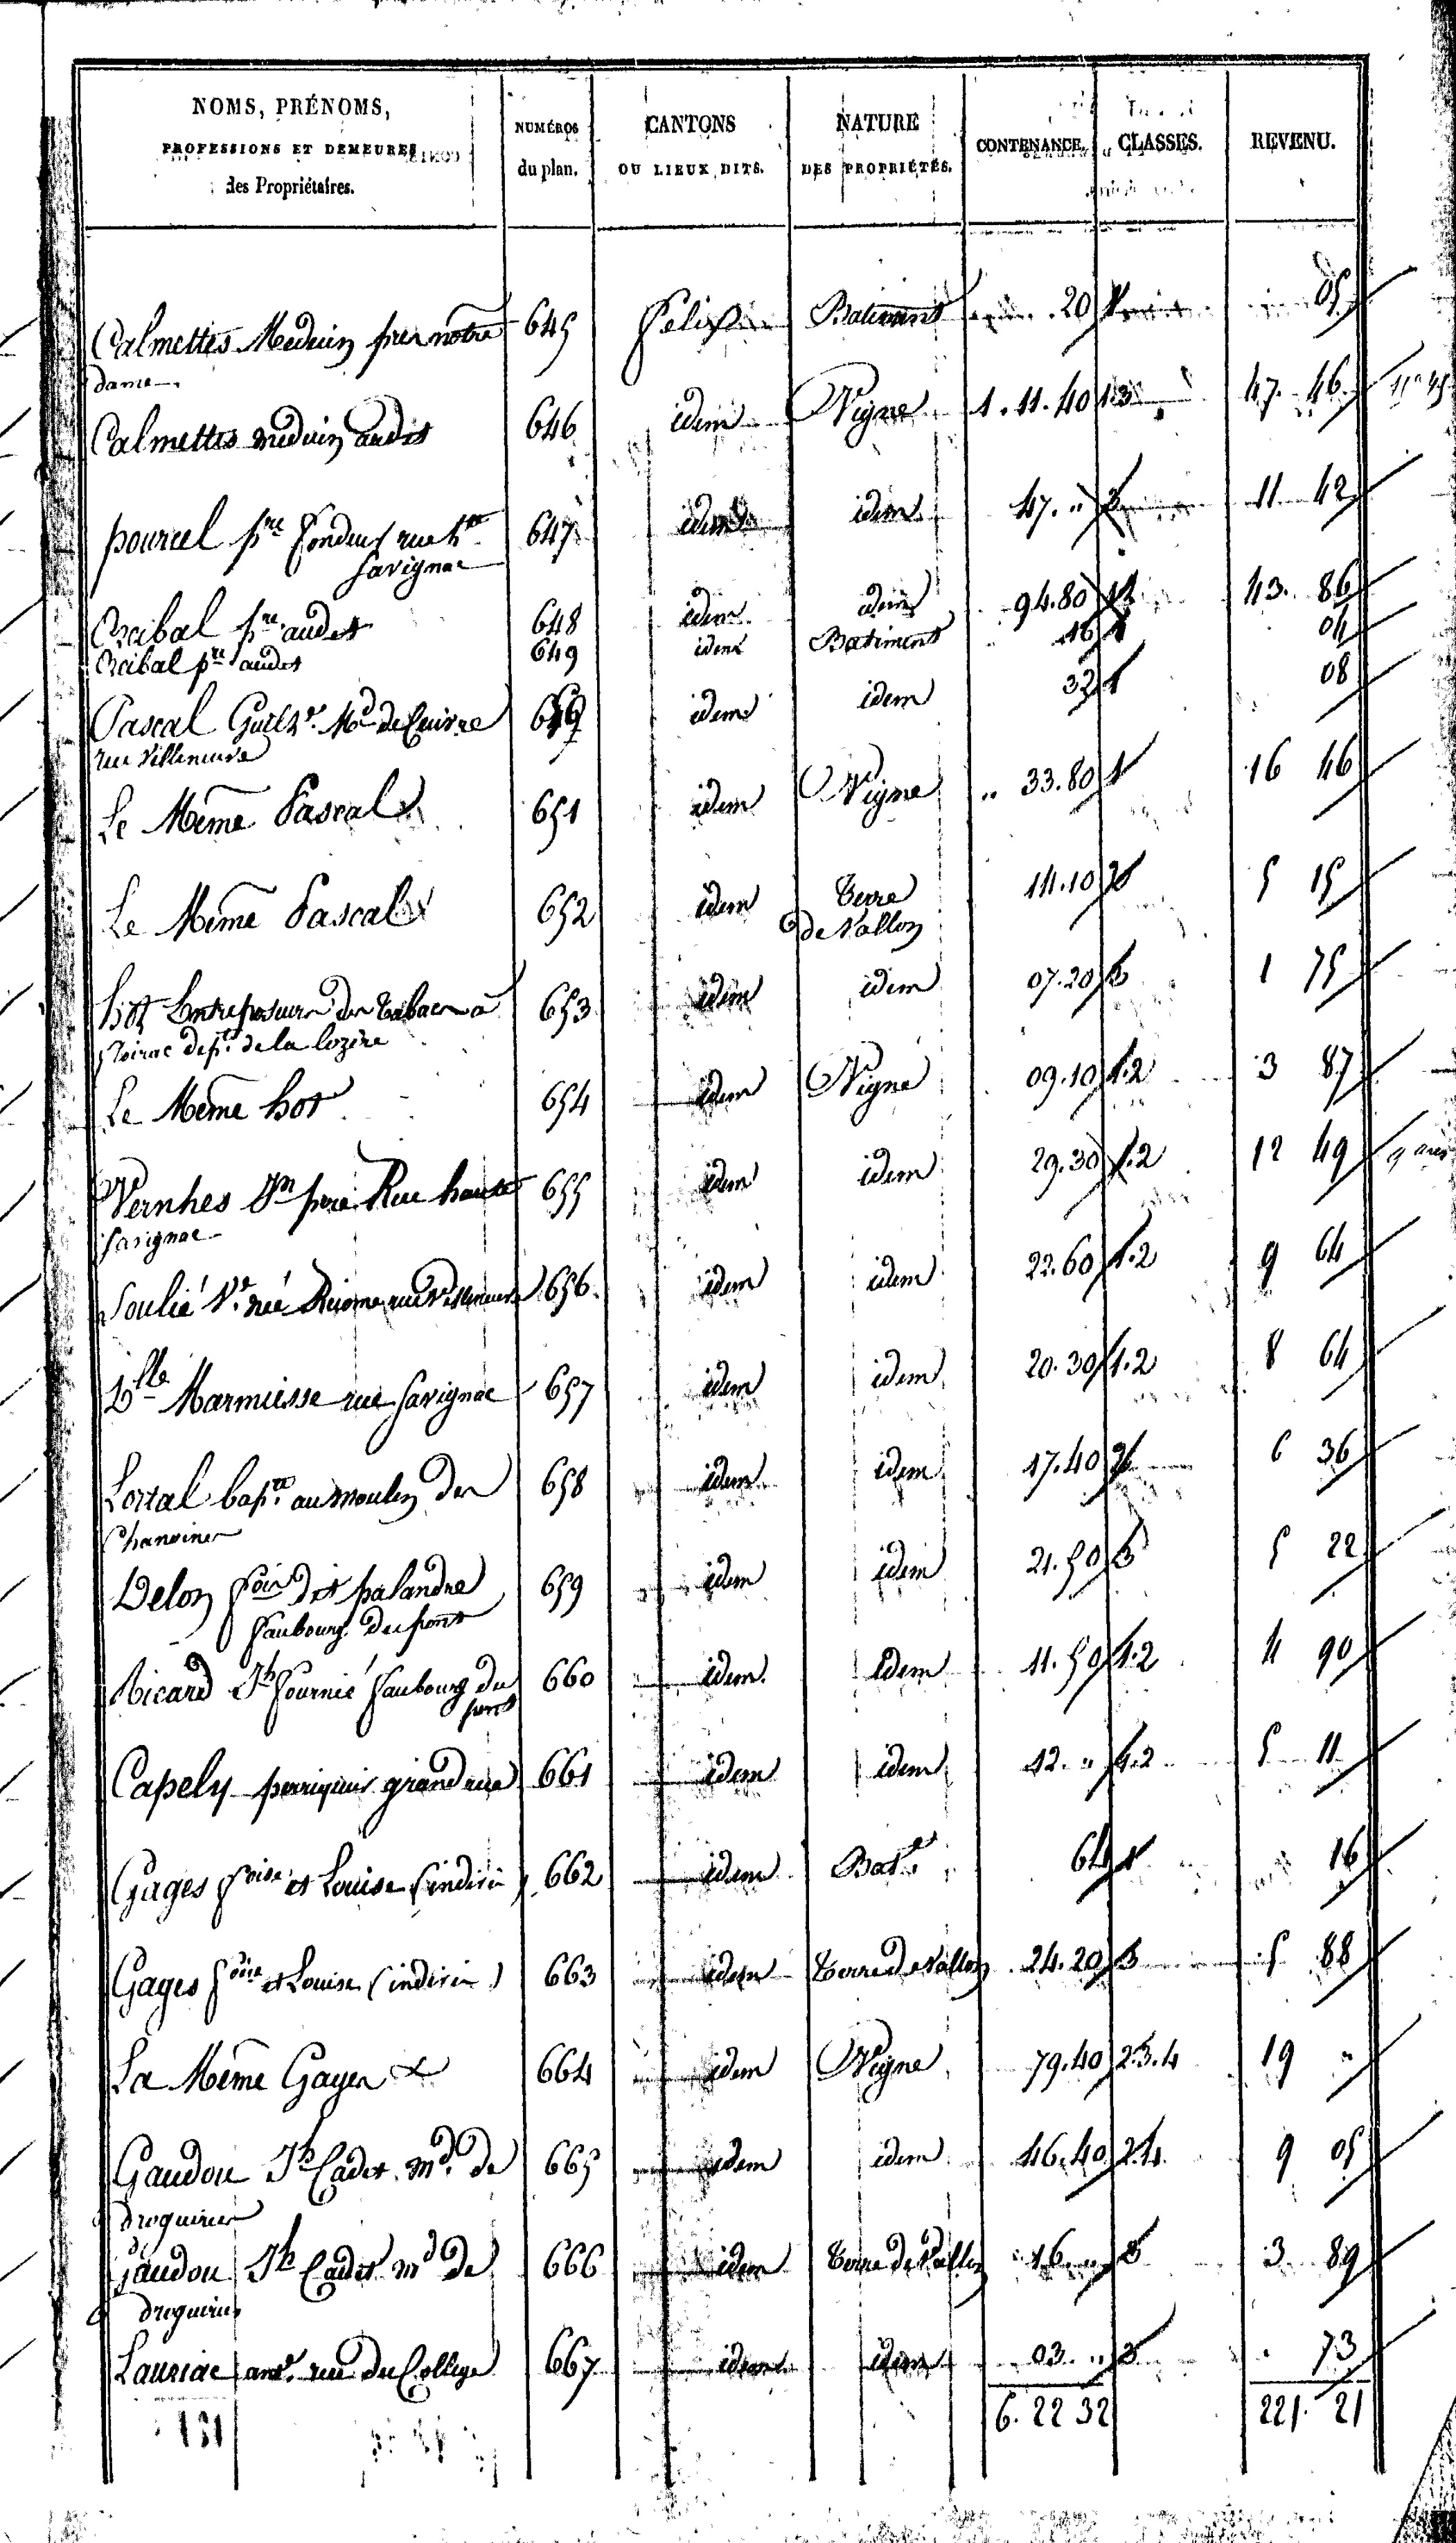 NOMS, PRÉNOMS, PROFESSIONS ET DEMEURES des Propriétaires. | NUMÉROS du plan. | CANTONS OU LIEUX DITS. | NATURE DES PROPRIÉTÉS. | CONTENANCE. | CLASSES. | REVENU.
Calmettes Medecin pres notre 645 Felix Batiment 20 1 05
dame
Calmettes medecin audit 646 idem Vigne 1. 11. 40 1.3 47. 46
pourcel pre fondeur rue hte 647 idem idem 47. " 3 11 42
Savignac
Cibal pre audit 648 idem idem 94.80 43. 86
Cibal pre audit 649 idem Batiment 16 1 04
Pascal Guille Md de Cuivre idem idem 32 1 08
rue Villeneuve
Le Même Pascal 651 idem Vigne " 33.80 1 16 46
Le Même Pascal 652 idem Terre 14.10 2 5 15
de Vallon
hot Entreposeur de tabac a 653 idem idem 07.20 3 1 75
dept de la lozère
Le Même hot 654 idem Vigne 09.10 1.2 3 87
Vernhes pere Rue haute 655 idem idem 29.30 1.2 12 49
Savignac
Soulié Ve née rue Villeneuve 656 idem idem 22.60 1.2 9 64
Dlle Marmiesse rue Savignac 657 idem idem 20.30 1.2 8 64
Lortal bapte au moulin des 658 idem idem 17.40 2 6 36
Chanoines
Delon fois dit palandre 659 idem idem 21.50 3 5 22
faubourg du pont
Ricard Jh fournié faubourg du 660 idem idem 11.50 1.2 4 90
pont
Capely perriquier grand rue 661 idem idem 12. " 1.2 5 11
Gages foise et Louise (indivis) 662 idem Bat. 64 1 16
Gages foise et Louise (indivis) 663 idem Terre de Vallon 24.20 3 5 88
La Même Gages 664 idem Vigne 79.40 2.3.4 19 "
Gaudou Jh Cadet md de 665 idem idem 46.40 2.4 9 05
droguerie
Gaudou Jh Cadet md de 666 idem Terre de Vallon 16. " 3 3 89
droguerie
Lauriac ant. rue du College 667 idem idem 03. " 3 73
6. 22 32 221. 21